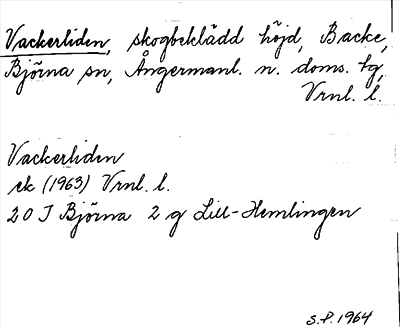 Vackerliden, skogbeklädd höjd, Backe,
Björna sn, Ångermanl. n. doms. tg,
Vrnl. l.
Vackerliden
ek (1963) Vrnl. l.
20 J Björna 2 g Lill-Hemlingen
S.P. 1964